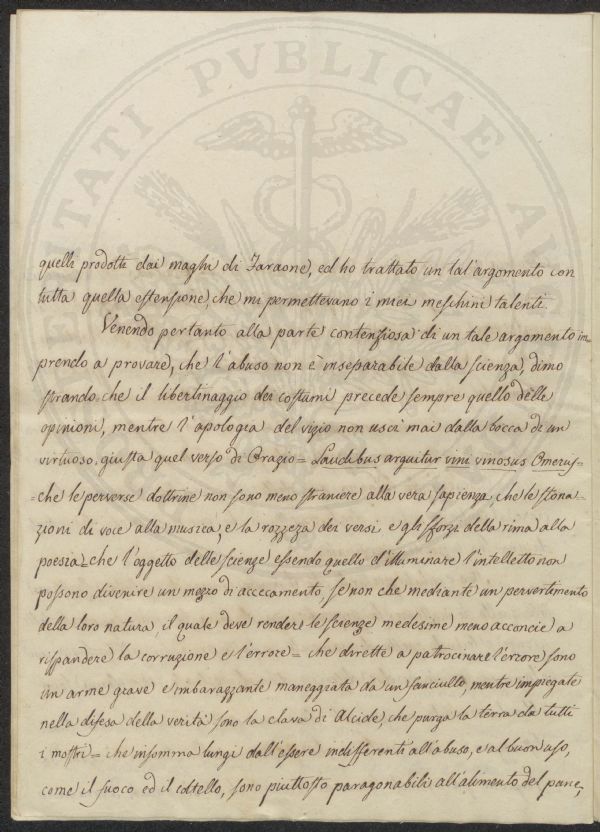 PVBLICAE
quelli prodotti dai maghi di Faraone, ed ho trattato un tal'argomento con
tutta quella estensione, che mi permettevano i miei meschini talenti.
Venendo pertanto alla parte contenziosa di un tale argomento im-
prendo a provare, che l'abuso non è inseparabile dalla scienza, dimo
strando, che il libertinaggio dei costumi precede sempre quello delle
opinioni, mentre l'apologia del vizio non uscì mai dalla bocca di un
virtuoso, giusta quel verso di Orazio = Laudibus arguitur vini vinosus Omerus =
= che le perverse dottrine non sono meno straniere alla vera sapienza, che le stona-
zioni di voce alla musica, e la rozzezza dei versi e gli sforzi della rima alla
poesia = che l'oggetto delle scienze essendo quello d'illuminare l'intelletto non
possono divenire un mezzo di acceccamento, se non che mediante un pervertimento
della loro natura, il quale deve rendere le scienze medesime meno acconcie a
rispandere la corruzione e l'errore = che dirette a patrocinare l'errore sono
un arme grave e imbarazzante maneggiata da un fanciullo, mentre impiegate
nella difesa della verità sono la clava di Alcide, che purga la terra da tutti
i mostri = che insomma lungi dall'essere indifferenti all'abuso, e al buon uso,
come il fuoco ed il coltello, sono piuttosto paragonabili all'alimento del pane,